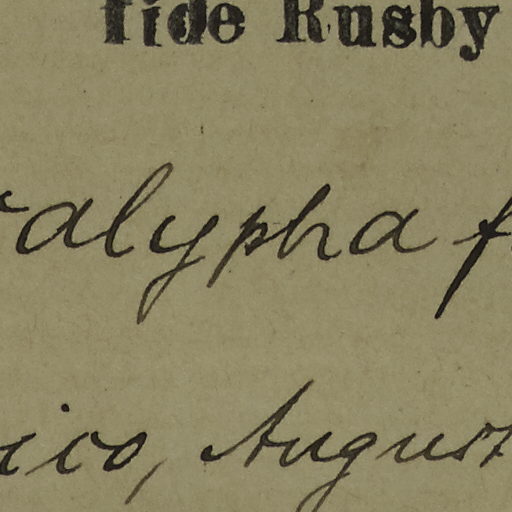 fide Rusby
calypha f
ico, August